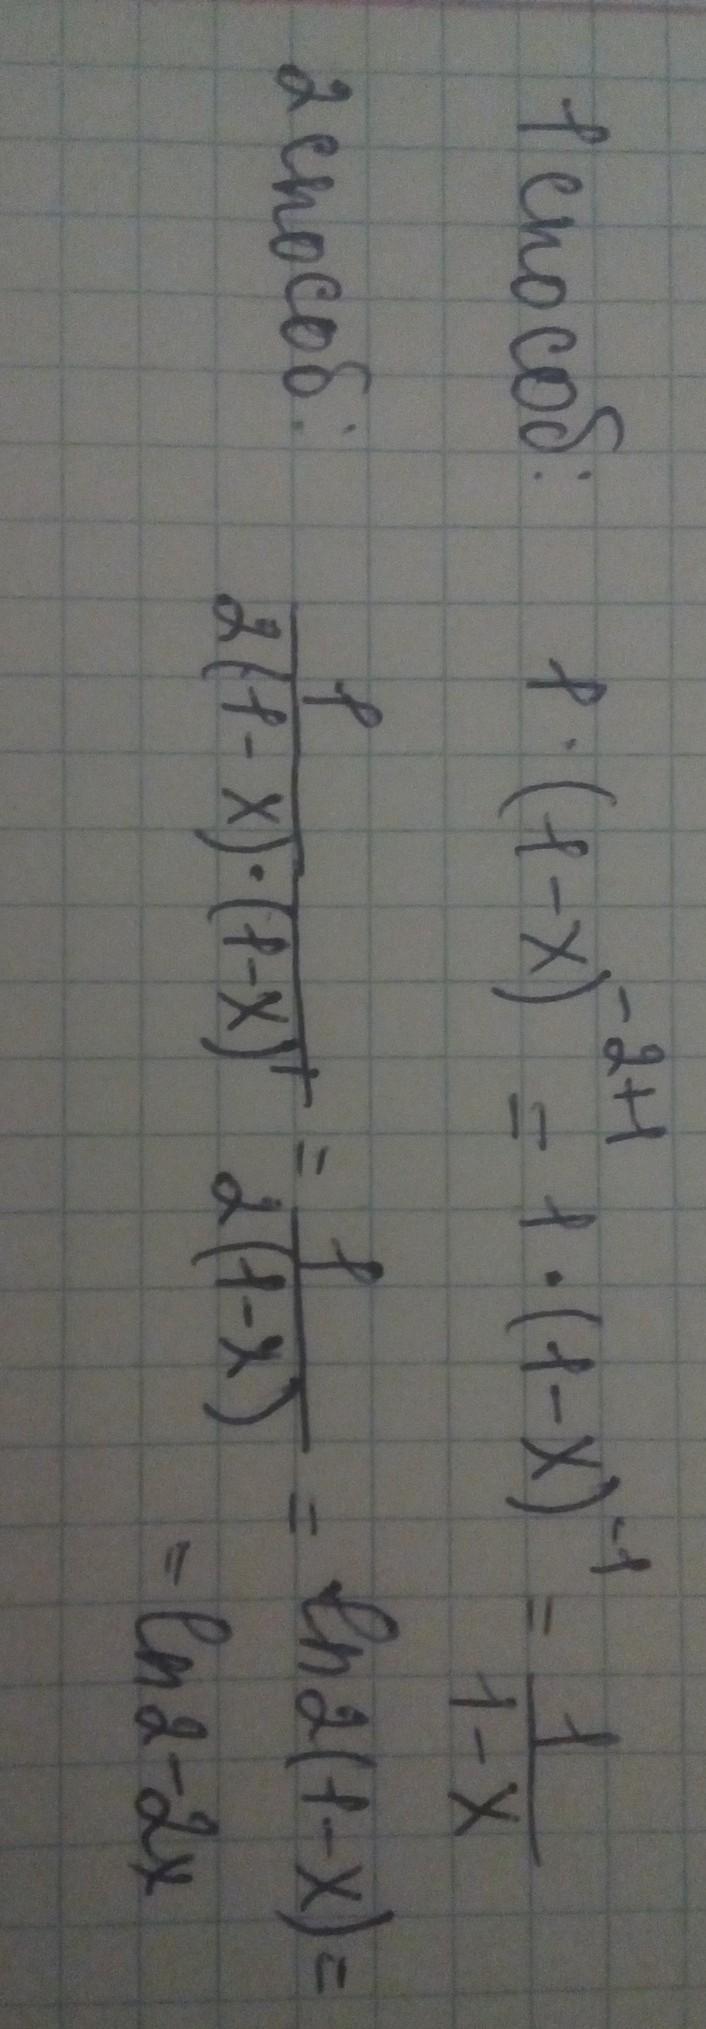 1 способ: 1·(1-x)^{-2+1} = 1·(1-x)^{-1} = \frac{1}{1-x}
2 способ: \frac{1}{2(1-x)·(1-x)'} = \frac{1}{2(1-x)} = ln2(1-x) =
= ln2-2x